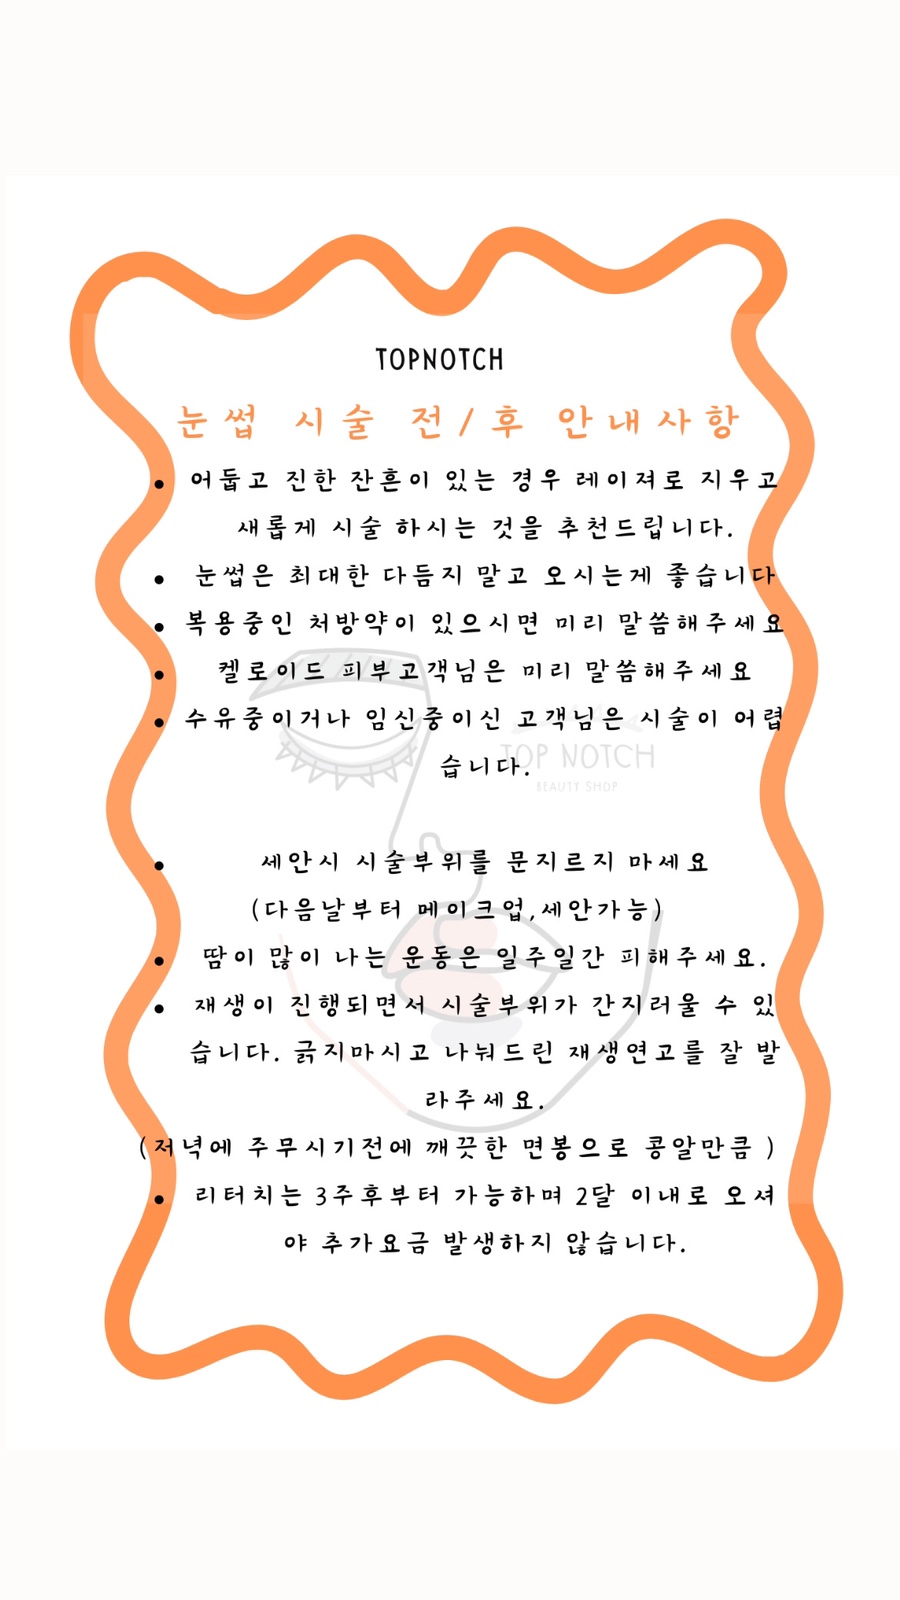 TOPNOTCH
눈썹 시술 전/후 안내사항
• 어둡고 진한 잔흔이 있는 경우 레이져로 지우고
새롭게 시술 하시는 것을 추천드립니다.
• 눈썹은 최대한 다듬지 말고 오시는게 좋습니다
• 복용중인 처방약이 있으시면 미리 말씀해주세요
• 켈로이드 피부고객님은 미리 말씀해주세요
• 수유중이거나 임신중이신 고객님은 시술이 어렵
습니다.
TOP NOTCH
BEAUTY SHOP
• 세안시 시술부위를 문지르지 마세요
(다음날부터 메이크업,세안가능)
• 땀이 많이 나는 운동은 일주일간 피해주세요.
• 재생이 진행되면서 시술부위가 간지러울 수 있
습니다. 긁지마시고 나눠드린 재생연고를 잘 발
라주세요.
(저녁에 주무시기전에 깨끗한 면봉으로 콩알만큼 )
• 리터치는 3주후부터 가능하며 2달 이내로 오셔
야 추가요금 발생하지 않습니다.